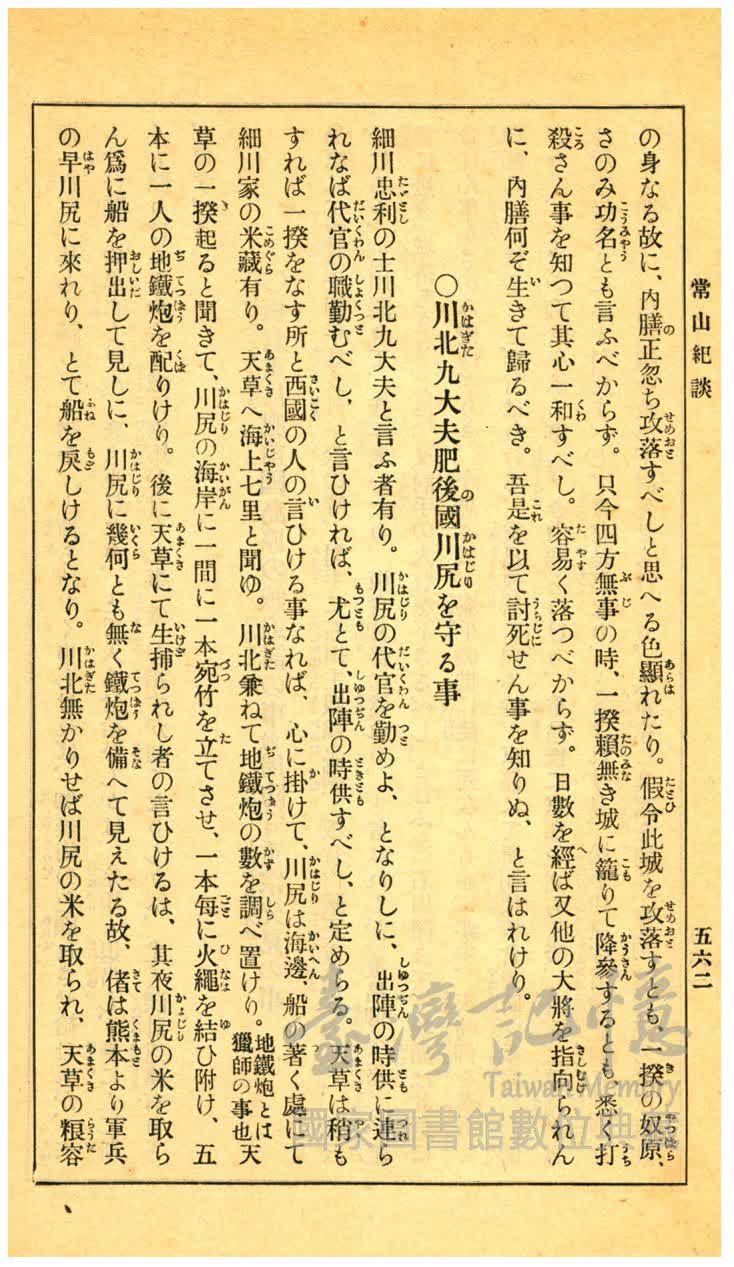 常山紀談
五六二
の身なる故に、内膳正忽ち攻落すべしと思へる色顯れたり。假令此城を攻落すとも、一揆の奴原、
さのみ功名とも言ふべからず。只今四方無事の時、一揆賴無き城に籠りて降參するとも、悉く打
殺さん事を知つて其心一和すべし。容易く落つべからず。日數を經ば又他の大將を指向られん
に、内膳何ぞ生きて歸るべき。吾是を以て討死せん事を知りぬ、と言はれけり。
○川北九大夫肥後國川尻を守る事
細川忠利の士川北九大夫と言ふ者有り。川尻の代官を勤めよ、となりしに、出陣の時供に連ら
れなば代官の職勤むべし、と言ひければ、尤とて、出陣の時供すべし、と定めらる。天草は稍も
すれば一揆をなす所と西國の人の言ひける事なれば、心に掛けて、川尻は海邊、船の著く處にて
細川家の米藏有り。天草へ海上七里と聞ゆ。川北兼ねて地鐵炮の數を調べ置けり。地鐵炮とは獵師の事也天
草の一揆起ると聞きて、川尻の海岸に一間に一本宛竹を立てさせ、一本每に火繩を結ひ附け、五
本に一人の地鐵炮を配りけり。後に天草にて生捕られし者の言ひけるは、其夜川尻の米を取ら
ん爲に船を押出して見しに、川尻に幾何とも無く鐵炮を備へて見えたる故、偖は熊本より軍兵
の早川尻に來れり、とて船を戾しけるとなり。川北無かりせば川尻の米を取られ、天草の粮容
臺灣記憶
Taiwan Memory
國家圖書館數位典藏